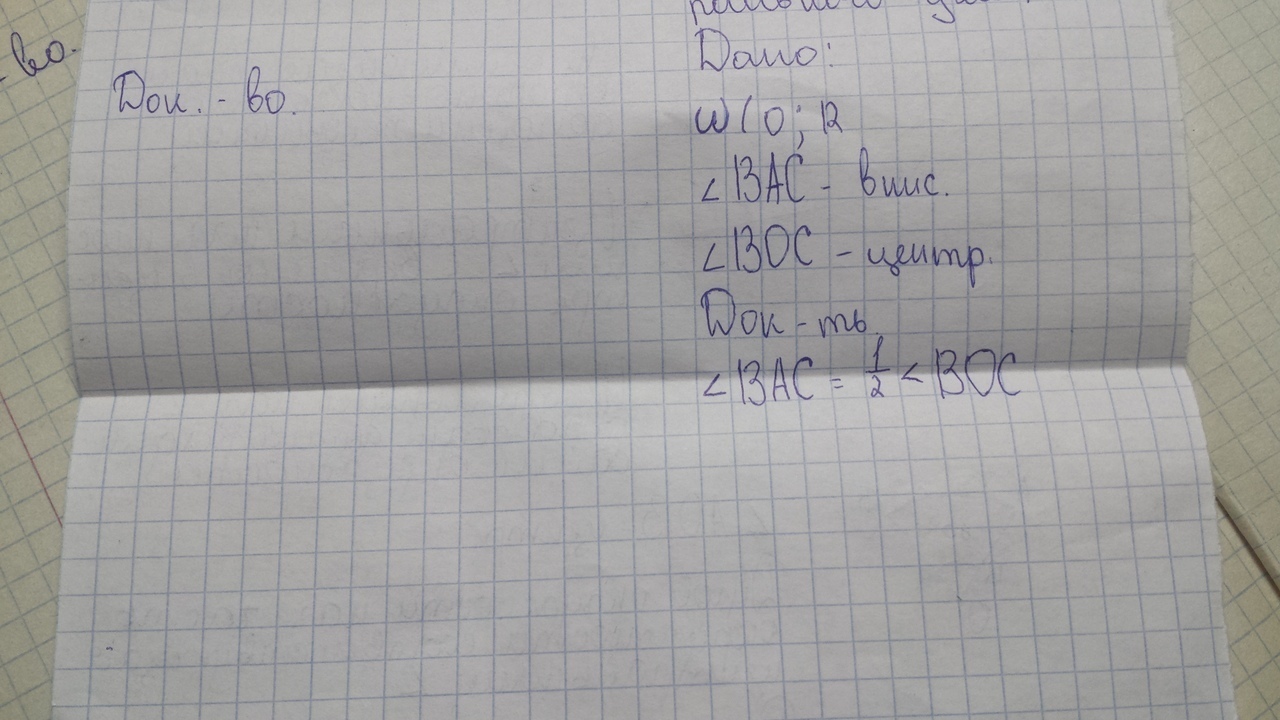 -во.
Док.-во.
Дано:
W(O; R
∠BAC - впис.
∠BOC - центр.
Док-ть
∠BAC = 1/2 ∠BOC